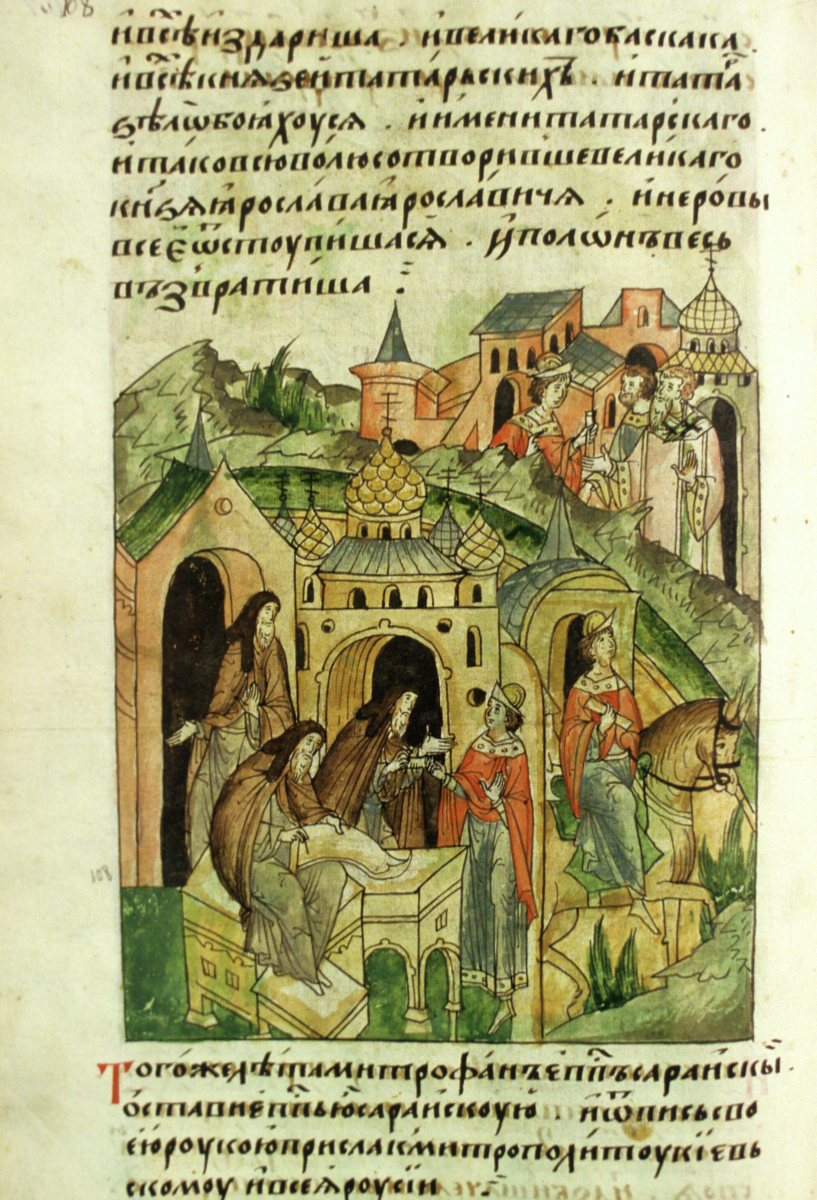 108
и҆ всѣ и҆здариша . и҆ великаго баскака .
и҆ всѣ кнѧзеи татарьских̾ . и҆ тата
зѣлѡ боꙗ́хоусѧ . и҆ и҆мени татарскаго .
и҆ тако всю волю сотворивше великаго
кн҃зѧ ꙗ҆росла́ва ꙗ҆росла́вичѧ . и҆ неро́вы
все еѡ҆стоупишасѧ . и҆ полѡ́нъ весь
възврати́ша :
108
Того́же лѣта митрофа́нъ еп҃пъ сара́искы .
о҆стави еп҃пью сараискоую . и҆ ѿпись сво
ею роукою присла к митрополи́тоу кі́евь
скомоу и҆ всеѧ роусіи